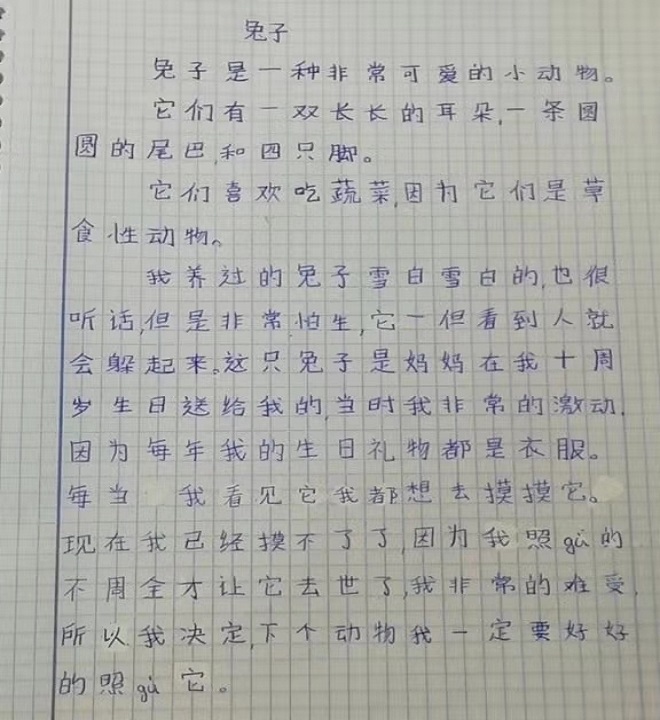 兔子
兔子是一种非常可爱的小动物。
它们有一双长长的耳朵,一条圆
圆的尾巴,和四只脚。
它们喜欢吃蔬菜,因为它们是草
食性动物。
我养过的兔子雪白雪白的,也很
听话,但是非常怕生,它一但看到人就
会躲起来。这只兔子是妈妈在我十周
岁生日送给我的,当时我非常的激动,
因为每年我的生日礼物都是衣服。
每当 我看见它我都想去摸摸它。
现在我已经摸不了了,因为我照gù的
不周全才让它去世了,我非常的难受,
所以我决定,下个动物我一定要好好
的照gù它。